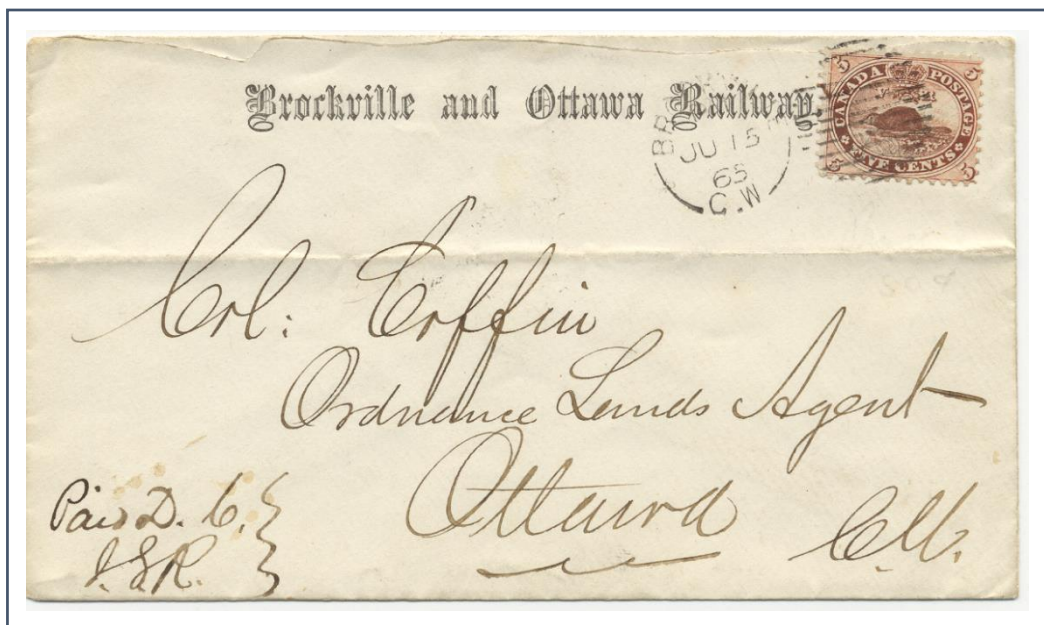 Brockville and Ottawa Railway
JU 15
65
C.W
5 5
CANADA POSTAGE
FIVE CENTS
5 5
Col: Coffin
Ordnance Lands Agent
Ottawa
C.W.
Paid D. C.